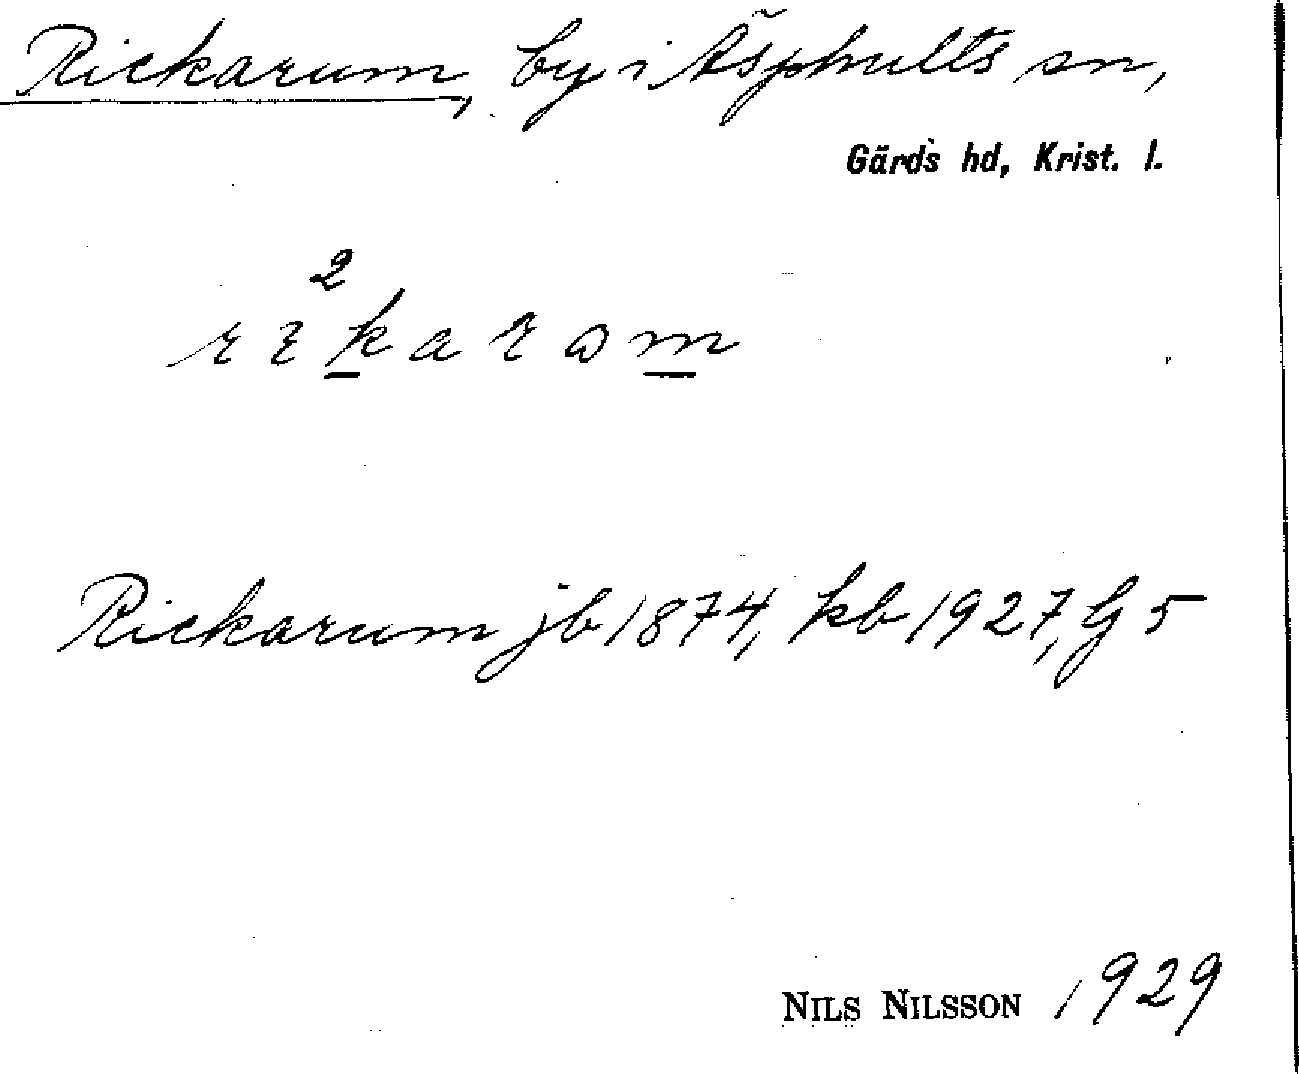 Rickarum, by i Äsphults sn,
Gärds hd, Krist. l.
2
rikarom
Rickarum jb 1874, kb 1927, G 5
NILS NILSSON 1929